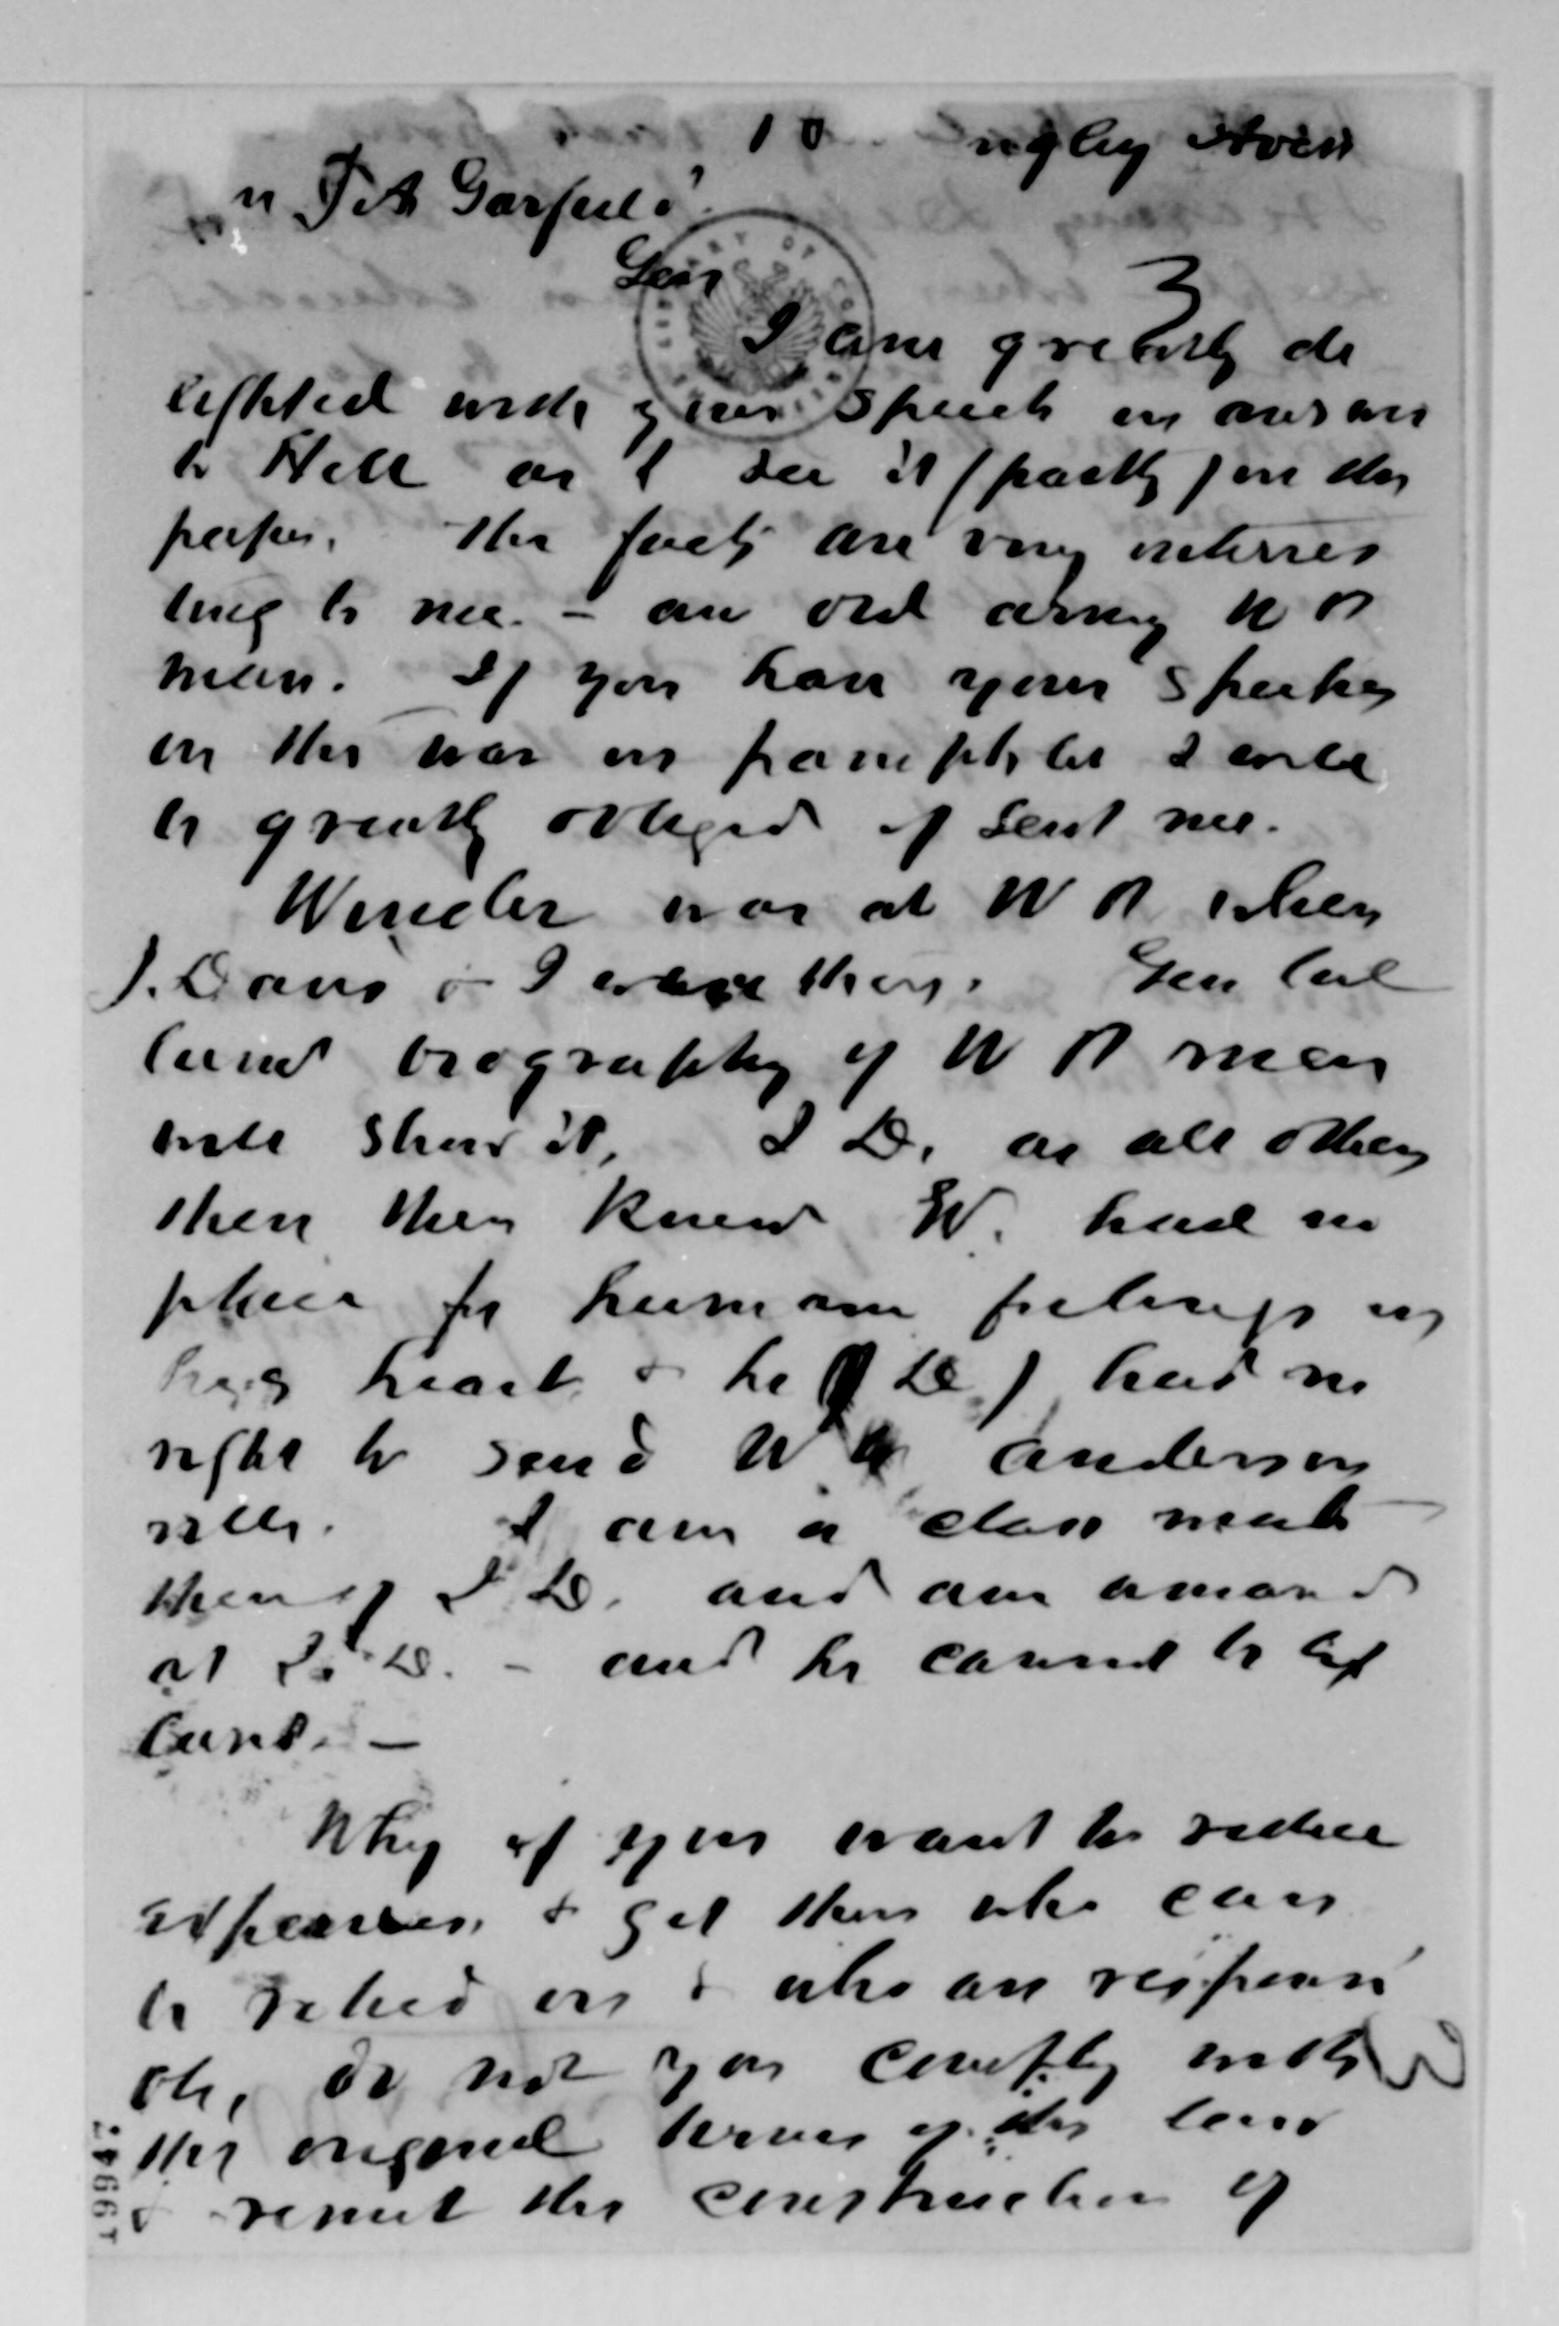 10
Garfield
Gen
3
I am greatly de
lighted with your speech in answer
to Hill as I see it (partly) in the
paper. The facts are very interres
ting to me. - an old army W P
man. If you have your speeches
in the war in pamphlet I wild
be greatly obliged if sent me.
Winder was at W P when
J. Davis & I were there. Gen Cul
lums biography of W P men
will show it. J D. as all others
then there knew W. had no
place for humane feelings in
his heart & he (J D) had no
right to send W to Anderson
ville. I am a class mate
then of J D. and am amazed
at J. D. - and he cannot be
Why if you want to reduce
expenses & get those who can
be relied on & who are responsi
ble, do not you comply with
the original terms of the law
& remit the construction of
24661